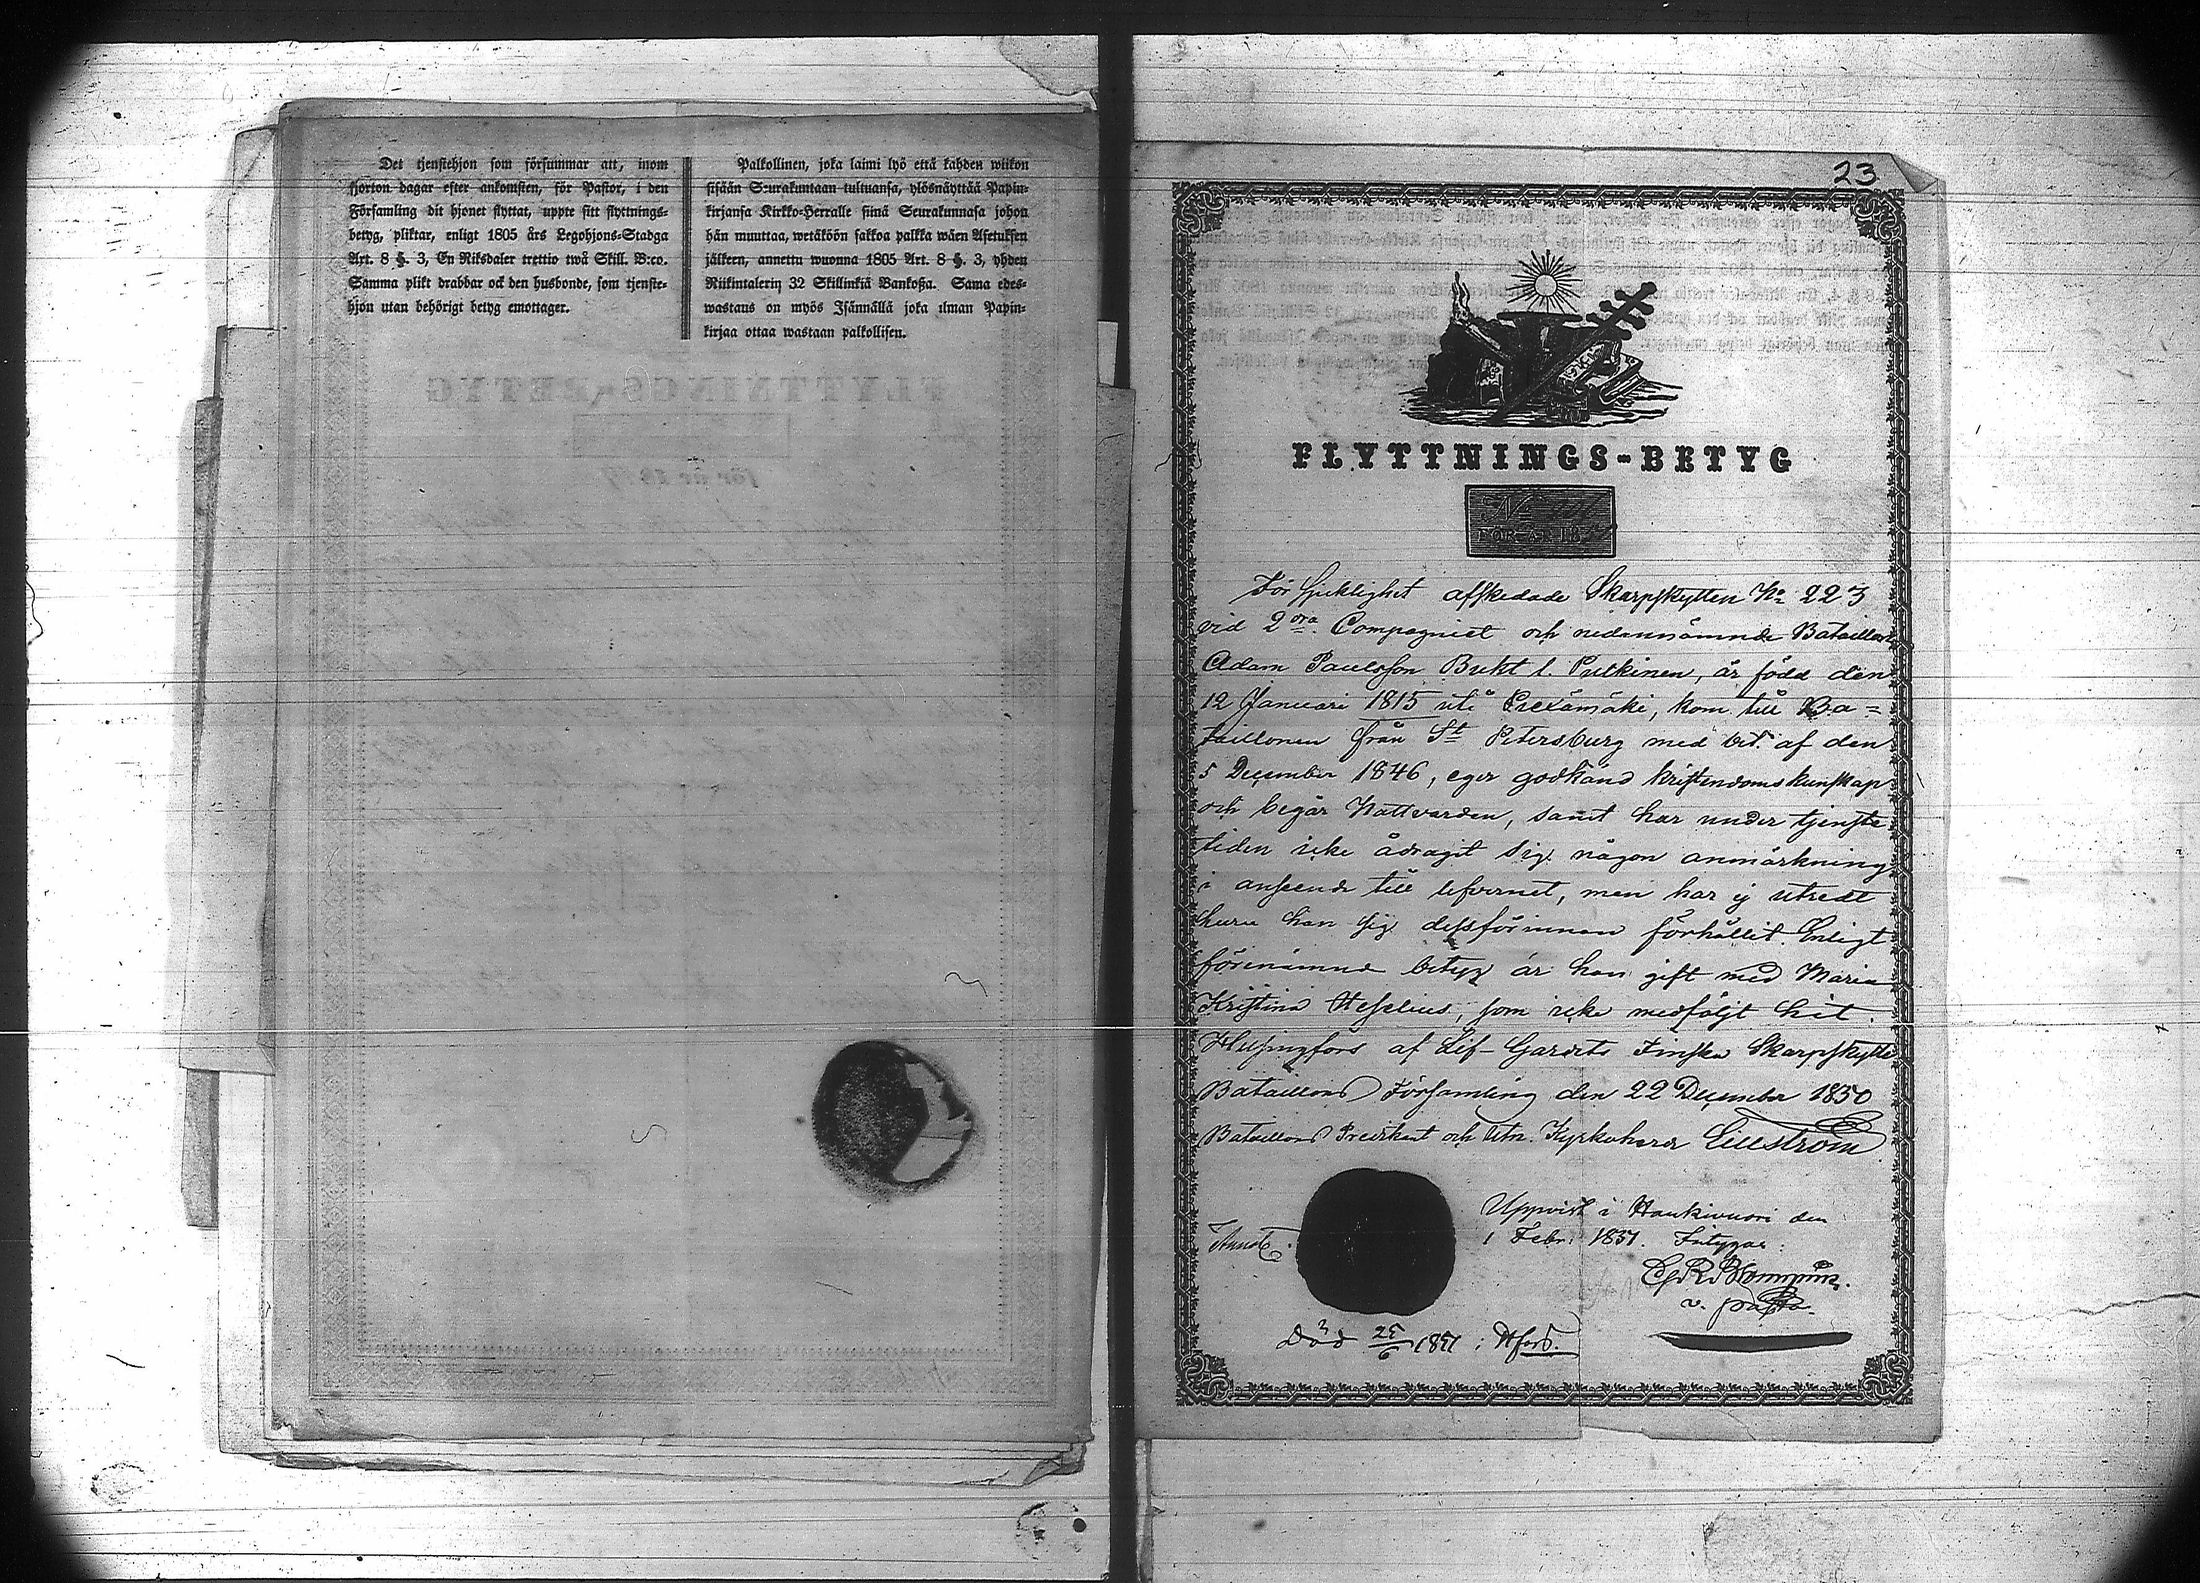 Det tjenstehjon som försummar att, inom
fjorton dagar efter ankomsten, för Pastor, i den
Församling dit hjonet flyttat, uppte sitt flyttnings-
betyg, pliktar, enligt 1805 års Legohjons-Stadga
Art. 8 §. 3, En Riksdaler trettio twå Skill. B:co.
Samma plikt drabbar ock den husbonde, som tjenste-
hjon utan behörigt betyg emottager.
Palkollinen, joka laimi lyö että kahden wiikon
sisään Seurakuntaan tultuansa, ylösnäyttää Papin-
kirjansa Kirkko-Herralle siinä Seurakunnasa johon
hän muuttaa, wetäköön sakkoa palkka wäen Asetuksen
jälkeen, annettu wuonna 1805 Art. 8 §. 3, yhden
Riikintalerin 32 Skillinkiä Bankossa. Sama edes-
wastaus on myös Isännällä joka ilman Papin-
kirjaa ottaa wastaan palkollisen.
23
FLYTTNINGS-BETYG
N:o
FÖR ÅR 18
För sjuklighet afskedade Skarpskytten No 223
vid 2dra Compagniet och nedannämnde Bataillon
Adam Paulsson Bukt l. Pulkinen, är född den
12 Januari 1815 uti Piexämäki, kom till Ba=
taillonen från St Petersburg med bet. af den
5 December 1846, eger godkänd kristendomskunskap
och begår Nattvarden, samt har under tjenste
tiden icke ådragit sig någon anmärkning
i anseende till lefvernet, men har ej utredt
huru han sig dessförinnan förhållit. Enligt
förenämnde betyg är han gift med Maria
Kristina Hesselius, som icke medföljt hit.
Helsingfors af Lif-Gardets Finska Skarpskytte
Bataillons Församling den 22 December 1850
Bataillons Predikant och Kyrkoherde Lillström
Uppvist i Haukivuori den
1 Febr: 1851. Intygar:
v. pastor
Död 25/6 1851 i Hfors.